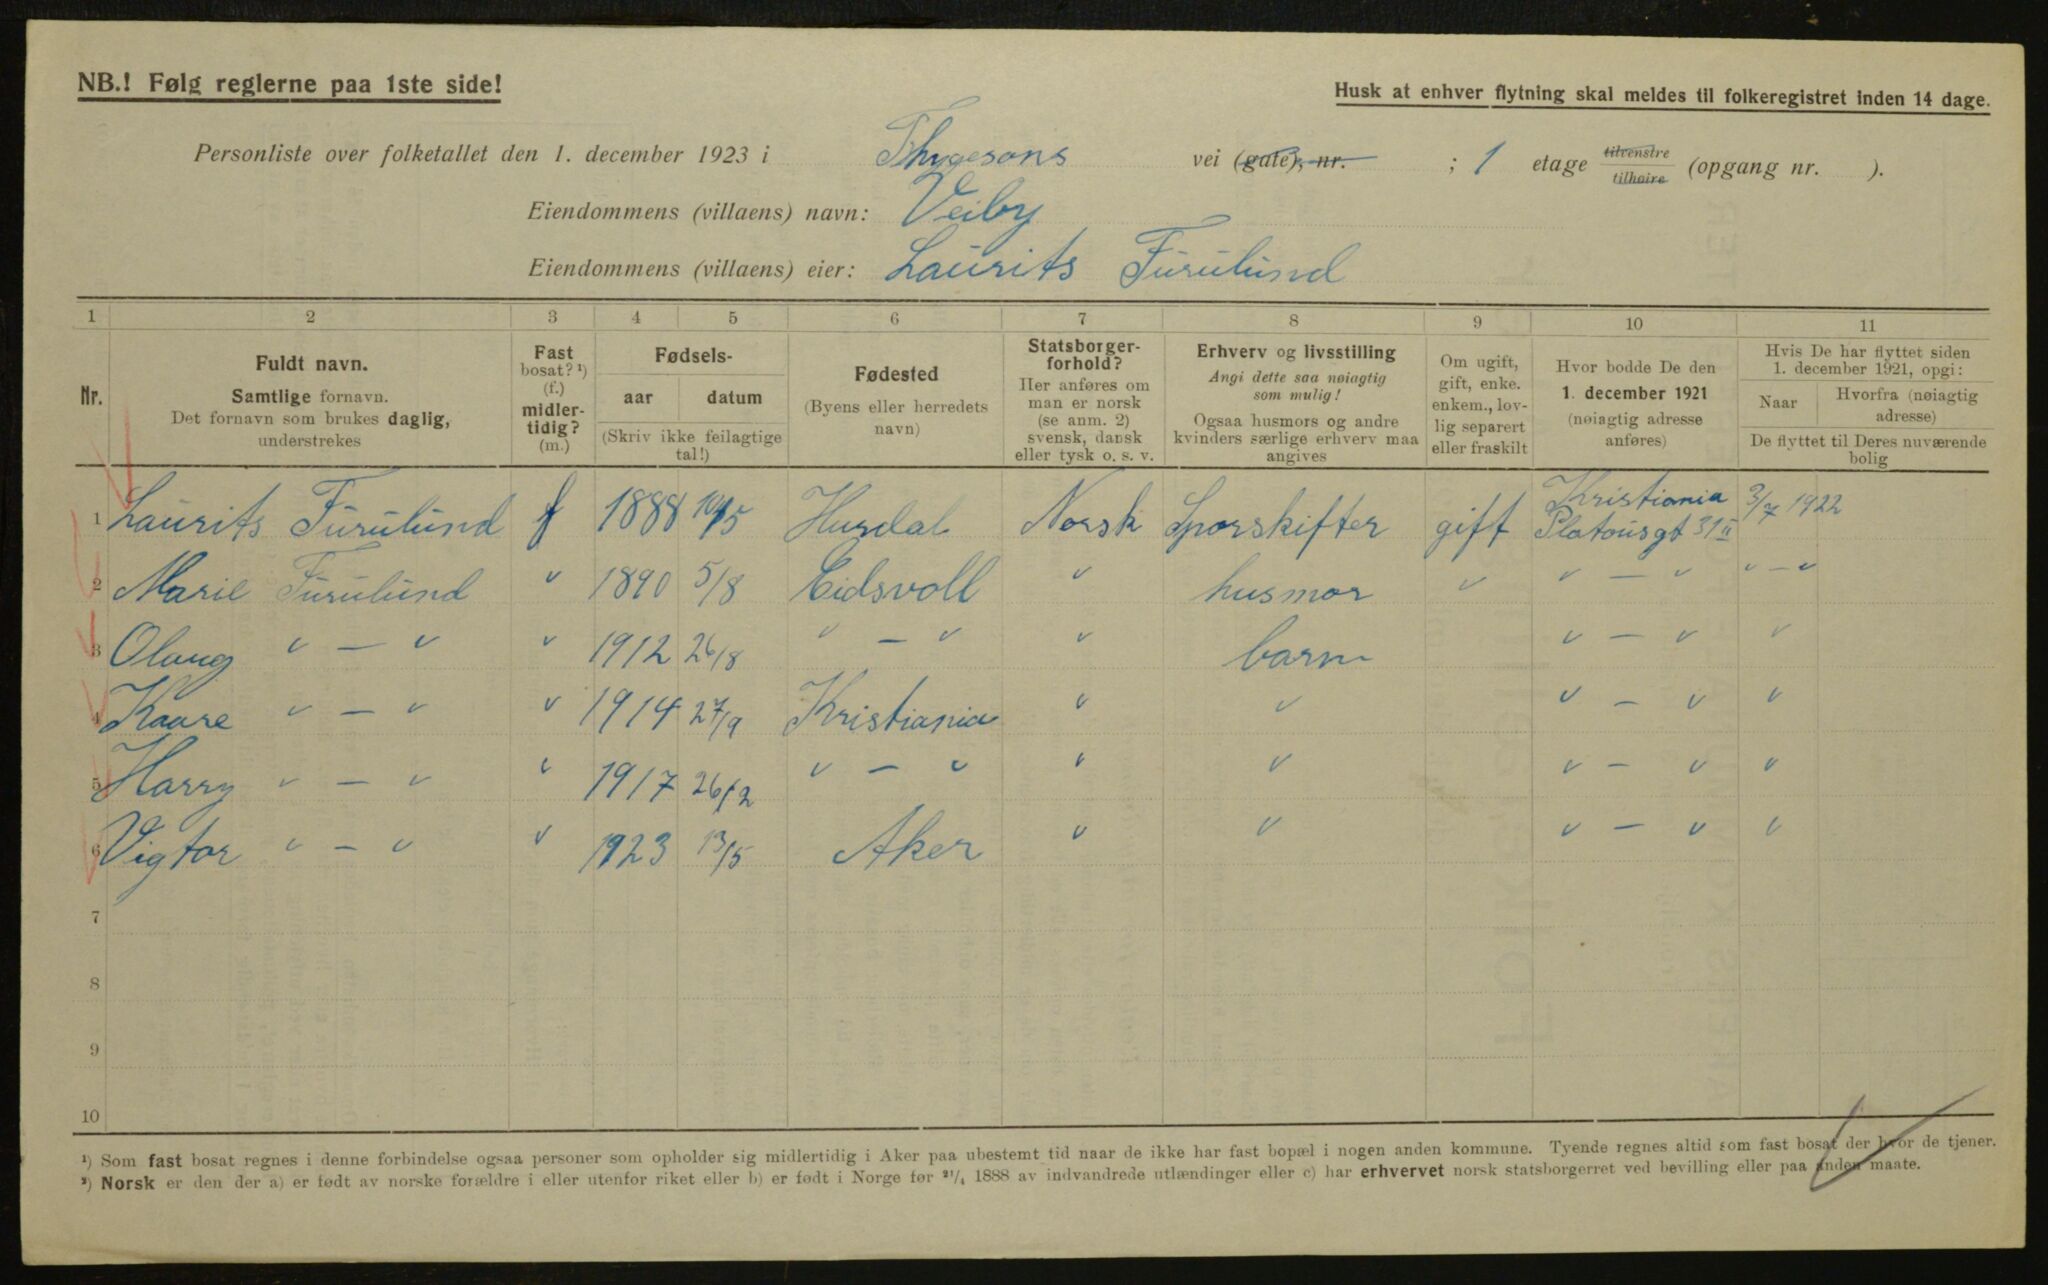 NB.! Følg reglerne paa 1ste side!
Husk at enhver flytning skal meldes til folkeregistret inden 14 dage.
Personliste over folketallet den 1. december 1923 i Thygesons vei (gate), nr. ; 1 etage tilvenstre tilhøire (opgang nr. ).
Eiendommens (villaens) navn: Veiby
Eiendommens (villaens) eier: Laurits Furulund
1 2 3 4 5 6 7 8 9 10 11
Nr.
Fuldt navn.
Samtlige fornavn.
Det fornavn som brukes daglig,
understrekes
Fast
bosat? ¹)
(f.)
midler-
tidig?
(m.)
Fødsels-
aar datum
(Skriv ikke feilagtige
tal!)
Fødested
(Byens eller herredets
navn)
Statsborger-
forhold?
Her anføres om
man er norsk
(se anm. 2)
svensk, dansk
eller tysk o. s. v.
Erhverv og livsstilling
Angi dette saa nøiagtig
som mulig!
Ogsaa husmors og andre
kvinders særlige erhverv maa
angives
Om ugift,
gift, enke.
enkem., lov-
lig separert
eller fraskilt
Hvor bodde De den
1. december 1921
(nøiagtig adresse
anføres)
Hvis De har flyttet siden
1. december 1921, opgi:
Naar
Hvorfra (nøiagtig
adresse)
De flyttet til Deres nuværende
bolig
1 Laurits Furulund f 1888 10/5 Hurdal Norsk Sporskifter gift Kristiania Platousgt 31 II 3/7 1922
2 Marie Furulund " 1890 5/8 Eidsvoll " husmor " " — " " — "
3 Olaug " — " " 1912 26/8 " — " " barn " — " "
4 Kaare " — " " 1914 27/9 Kristiania " " " — " "
5 Harry " — " " 1917 26/2 " — " " " " — " "
6 Vigtor " — " " 1923 13/5 Aker " " " — " "
7
8
9
10
¹) Som fast bosat regnes i denne forbindelse ogsaa personer som opholder sig midlertidig i Aker paa ubestemt tid naar de ikke har fast bopæl i nogen anden kommune. Tyende regnes altid som fast bosat der hvor de tjener.
²) Norsk er den der a) er født av norske forældre i eller utenfor riket eller b) er født i Norge før ²¹/₄ 1888 av indvandrede utlændinger eller c) har erhvervet norsk statsborgerret ved bevilling eller paa anden maate.